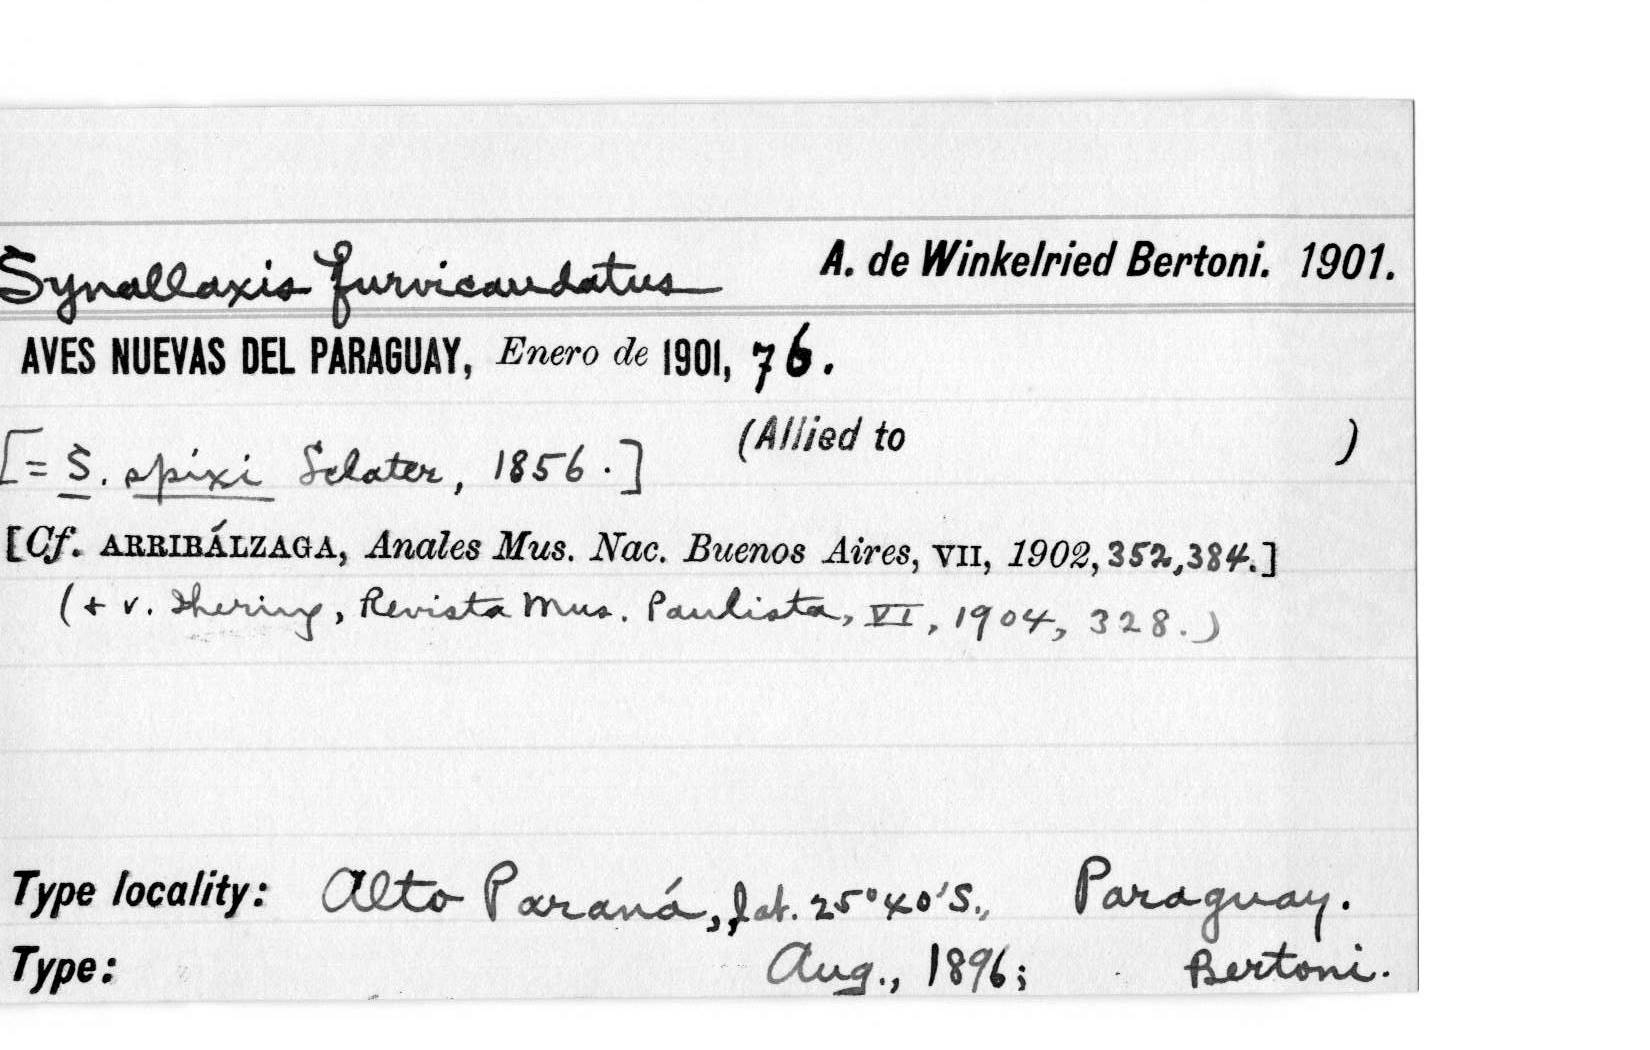 Synallaxis furvicaudatus A. de Winkelried Bertoni. 1901.
AVES NUEVAS DEL PARAGUAY, Enero de 1901, 76.
(Allied to )
[= S. spixi Sclater, 1856.]
[Cf. ARRIBÁLZAGA, Anales Mus. Nac. Buenos Aires, VII, 1902, 352, 384.]
(+ v. Ihering, Revista Mus. Paulista, VI, 1904, 328.)
Type locality: Alto Paraná, lat. 25°40'S., Paraguay.
Type: Aug., 1896; Bertoni.